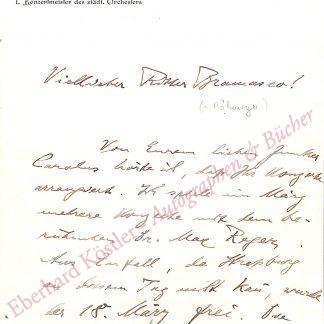 I. Konzertmeister des städt. Orchesters
Viellieber Ritter Bramasco!
Von Eurem lieben Junker
Carolus hörte ich, daß Ihr Konzerte
arrangiert. Ich spiele im März
mehrere Konzerte mit dem be-
rühmten Dr. Max Reger.
Aus Zufall, da Straßburg
an diesem Tag nicht kann, wurde
der 18. März frei. Die
Eberhard Köstler Autographen & Bücher